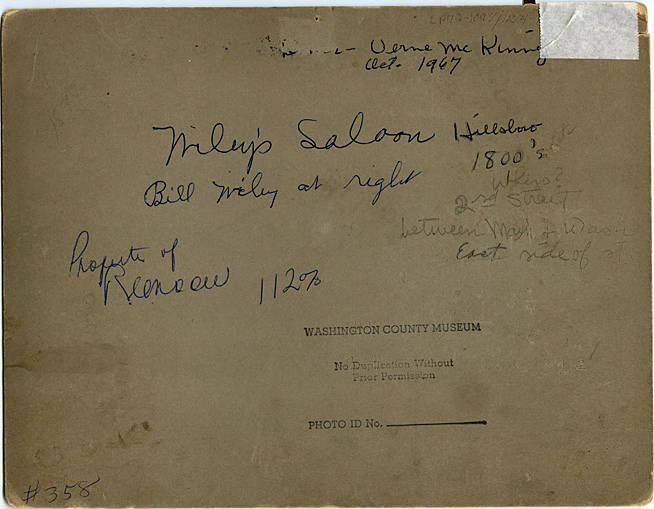 Verne Mc Kinney
Oct. 1967
Wiley's Saloon Hillsboro
1800's
Bill Wiley at right
Where?
2nd Street
between Main &
East side of st.
Property of
112%
WASHINGTON COUNTY MUSEUM
No Duplication Without
Prior Permission
PHOTO ID No.
#358